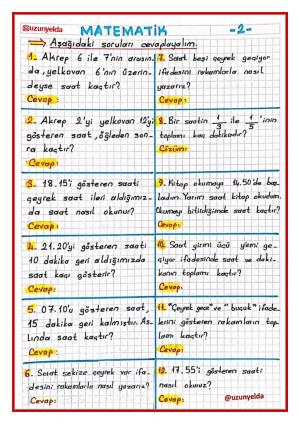 @uzunyelda
MATEMATİK -2-
Aşağıdaki soruları cevaplayalım.
1. Akrep 6 ile 7'nin arasın
da, yelkovan 6'nın üzerin-
deyse saat kaçtır?
Cevap:
2. Akrep 2'yi yelkovan 12'yi
gösteren saat, öğleden son-
ra kaçtır?
Cevap:
3. 18.15'i gösteren saati
çeyrek saat ileri aldığımız-
da saat nasıl okunur?
Cevap:
4. 21.20'yi gösteren saati
10 dakika geri aldığımızda
saat kaçı gösterir?
Cevap:
5. 07.10'u gösteren saat,
15 dakika geri kalmıştır. As-
lında saat kaçtır?
Cevap:
6. Saat sekize çeyrek var ifa-
desini rakamlarla nasıl yazarız?
Cevap:
7. Saat beşi çeyrek geçiyor
ifadesini rakamlarla nasıl
yazarız?
Cevap:
8. Bir saatin 1/3 ile 1/5 'inin
toplamı kaç dakikadır?
Çözüm:
9. Kitap okumaya 14.50'de baş-
ladım. Yarım saat kitap okudum.
Okumayı bitirdiğimde saat kaçtır?
Cevap:
10. Saat yirmi üçü yirmi ge-
çiyor ifadesinde saat ve daki-
kanın toplamı kaçtır?
Cevap:
11. "Çeyrek geçe" ve "buçuk" ifade-
lerini gösteren rakamların top-
lamı kaçtır?
Cevap:
12. 17.55'i gösteren saati
nasıl okuruz?
Cevap:
@uzunyelda